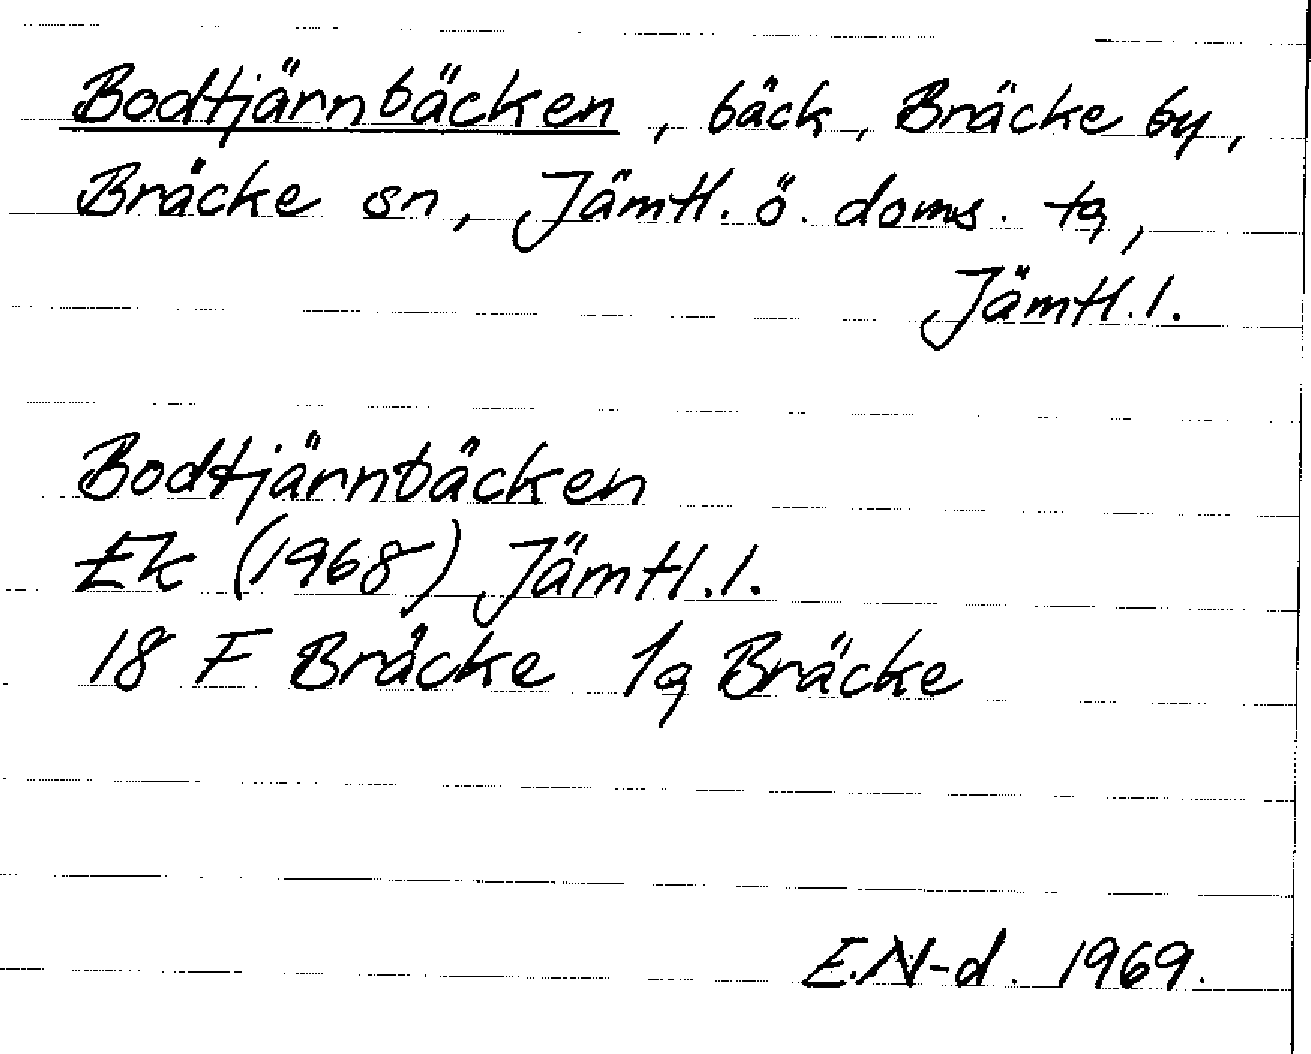 Bodtjärnbäcken, bäck, Bräcke by,
Bräcke sn, Jämtl. ö. doms. tg,
Jämtl. l.
Bodtjärnbäcken
Ek (1968) Jämtl. l.
18 F Bräcke 1g Bräcke
E.N-d. 1969.